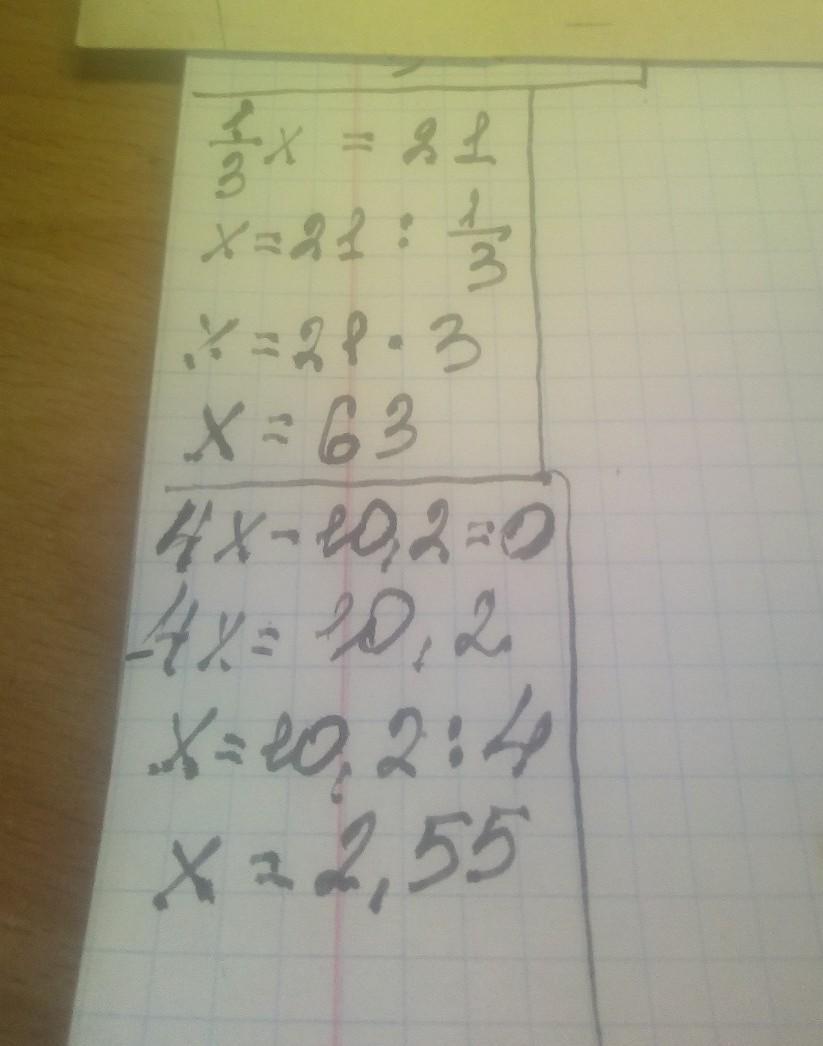 1/3 x = 21
x = 21 : 1/3
x = 21 · 3
x = 63
4x - 10,2 = 0
4x = 10,2
x = 10,2 : 4
x = 2,55